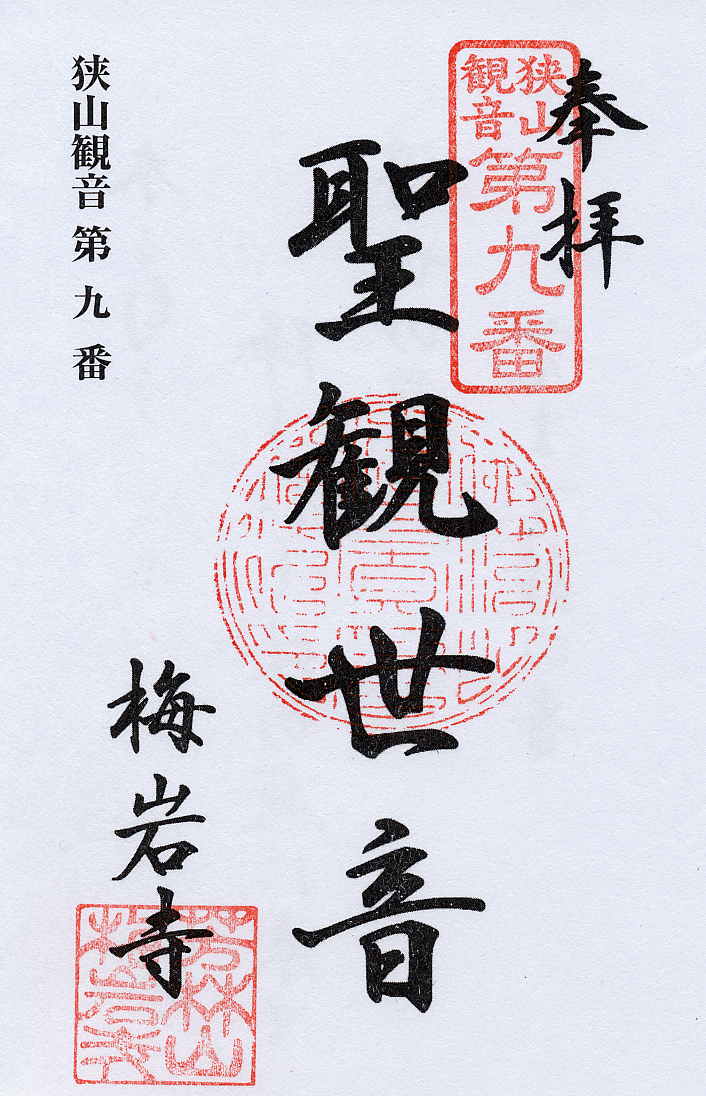 奉拝
狭山
観音
第九番
聖観世音
梅岩寺
狭山観音 第九番